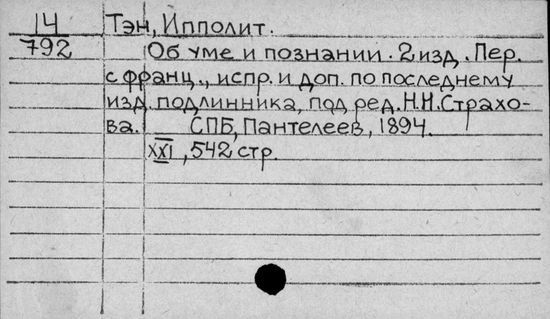 14 Тэн, Ипполит.
792 Об уме и познании. 2 изд. Пер.
с франц., испр. и доп. по последнему
изд. подлинника, под ред. Н.Н. Страхо-
ва. СПБ, Пантелеев, 1894.
XXI, 542 стр.